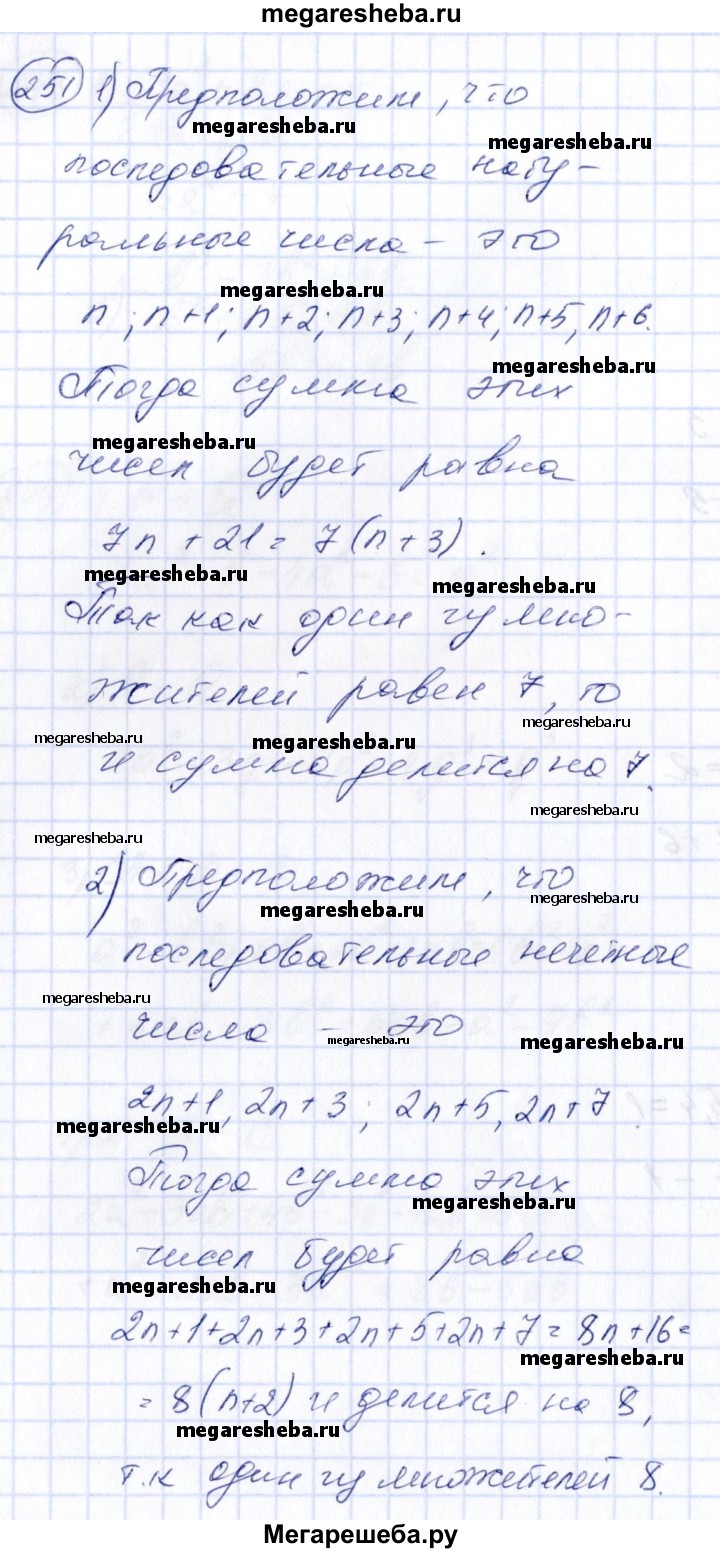 megaresheba.ru
251 1) Предположим, что
megaresheba.ru
megaresheba.ru
последовательные нату-
ральные числа - это
megaresheba.ru
n; n+1; n+2; n+3; n+4; n+5, n+6.
megaresheba.ru
Тогда сумма этих
megaresheba.ru
чисел будет равна
7n + 21 = 7(n+3).
megaresheba.ru
megaresheba.ru
Так как один из мно-
жителей равен 7, то
megaresheba.ru
megaresheba.ru
megaresheba.ru
и сумма делится на 7.
megaresheba.ru
megaresheba.ru
2) Предположим, что
megaresheba.ru
megaresheba.ru
последовательные нечетные
megaresheba.ru
числа - это
megaresheba.ru
megaresheba.ru
2n+1, 2n+3; 2n+5, 2n+7.
megaresheba.ru
Тогда сумма этих
megaresheba.ru
чисел будет равна
megaresheba.ru
2n+1+2n+3+2n+5+2n+7=8n+16=
megaresheba.ru
=8(n+2) и делится на 8,
megaresheba.ru
т.к один из множителей 8.
Мегарешеба.ру